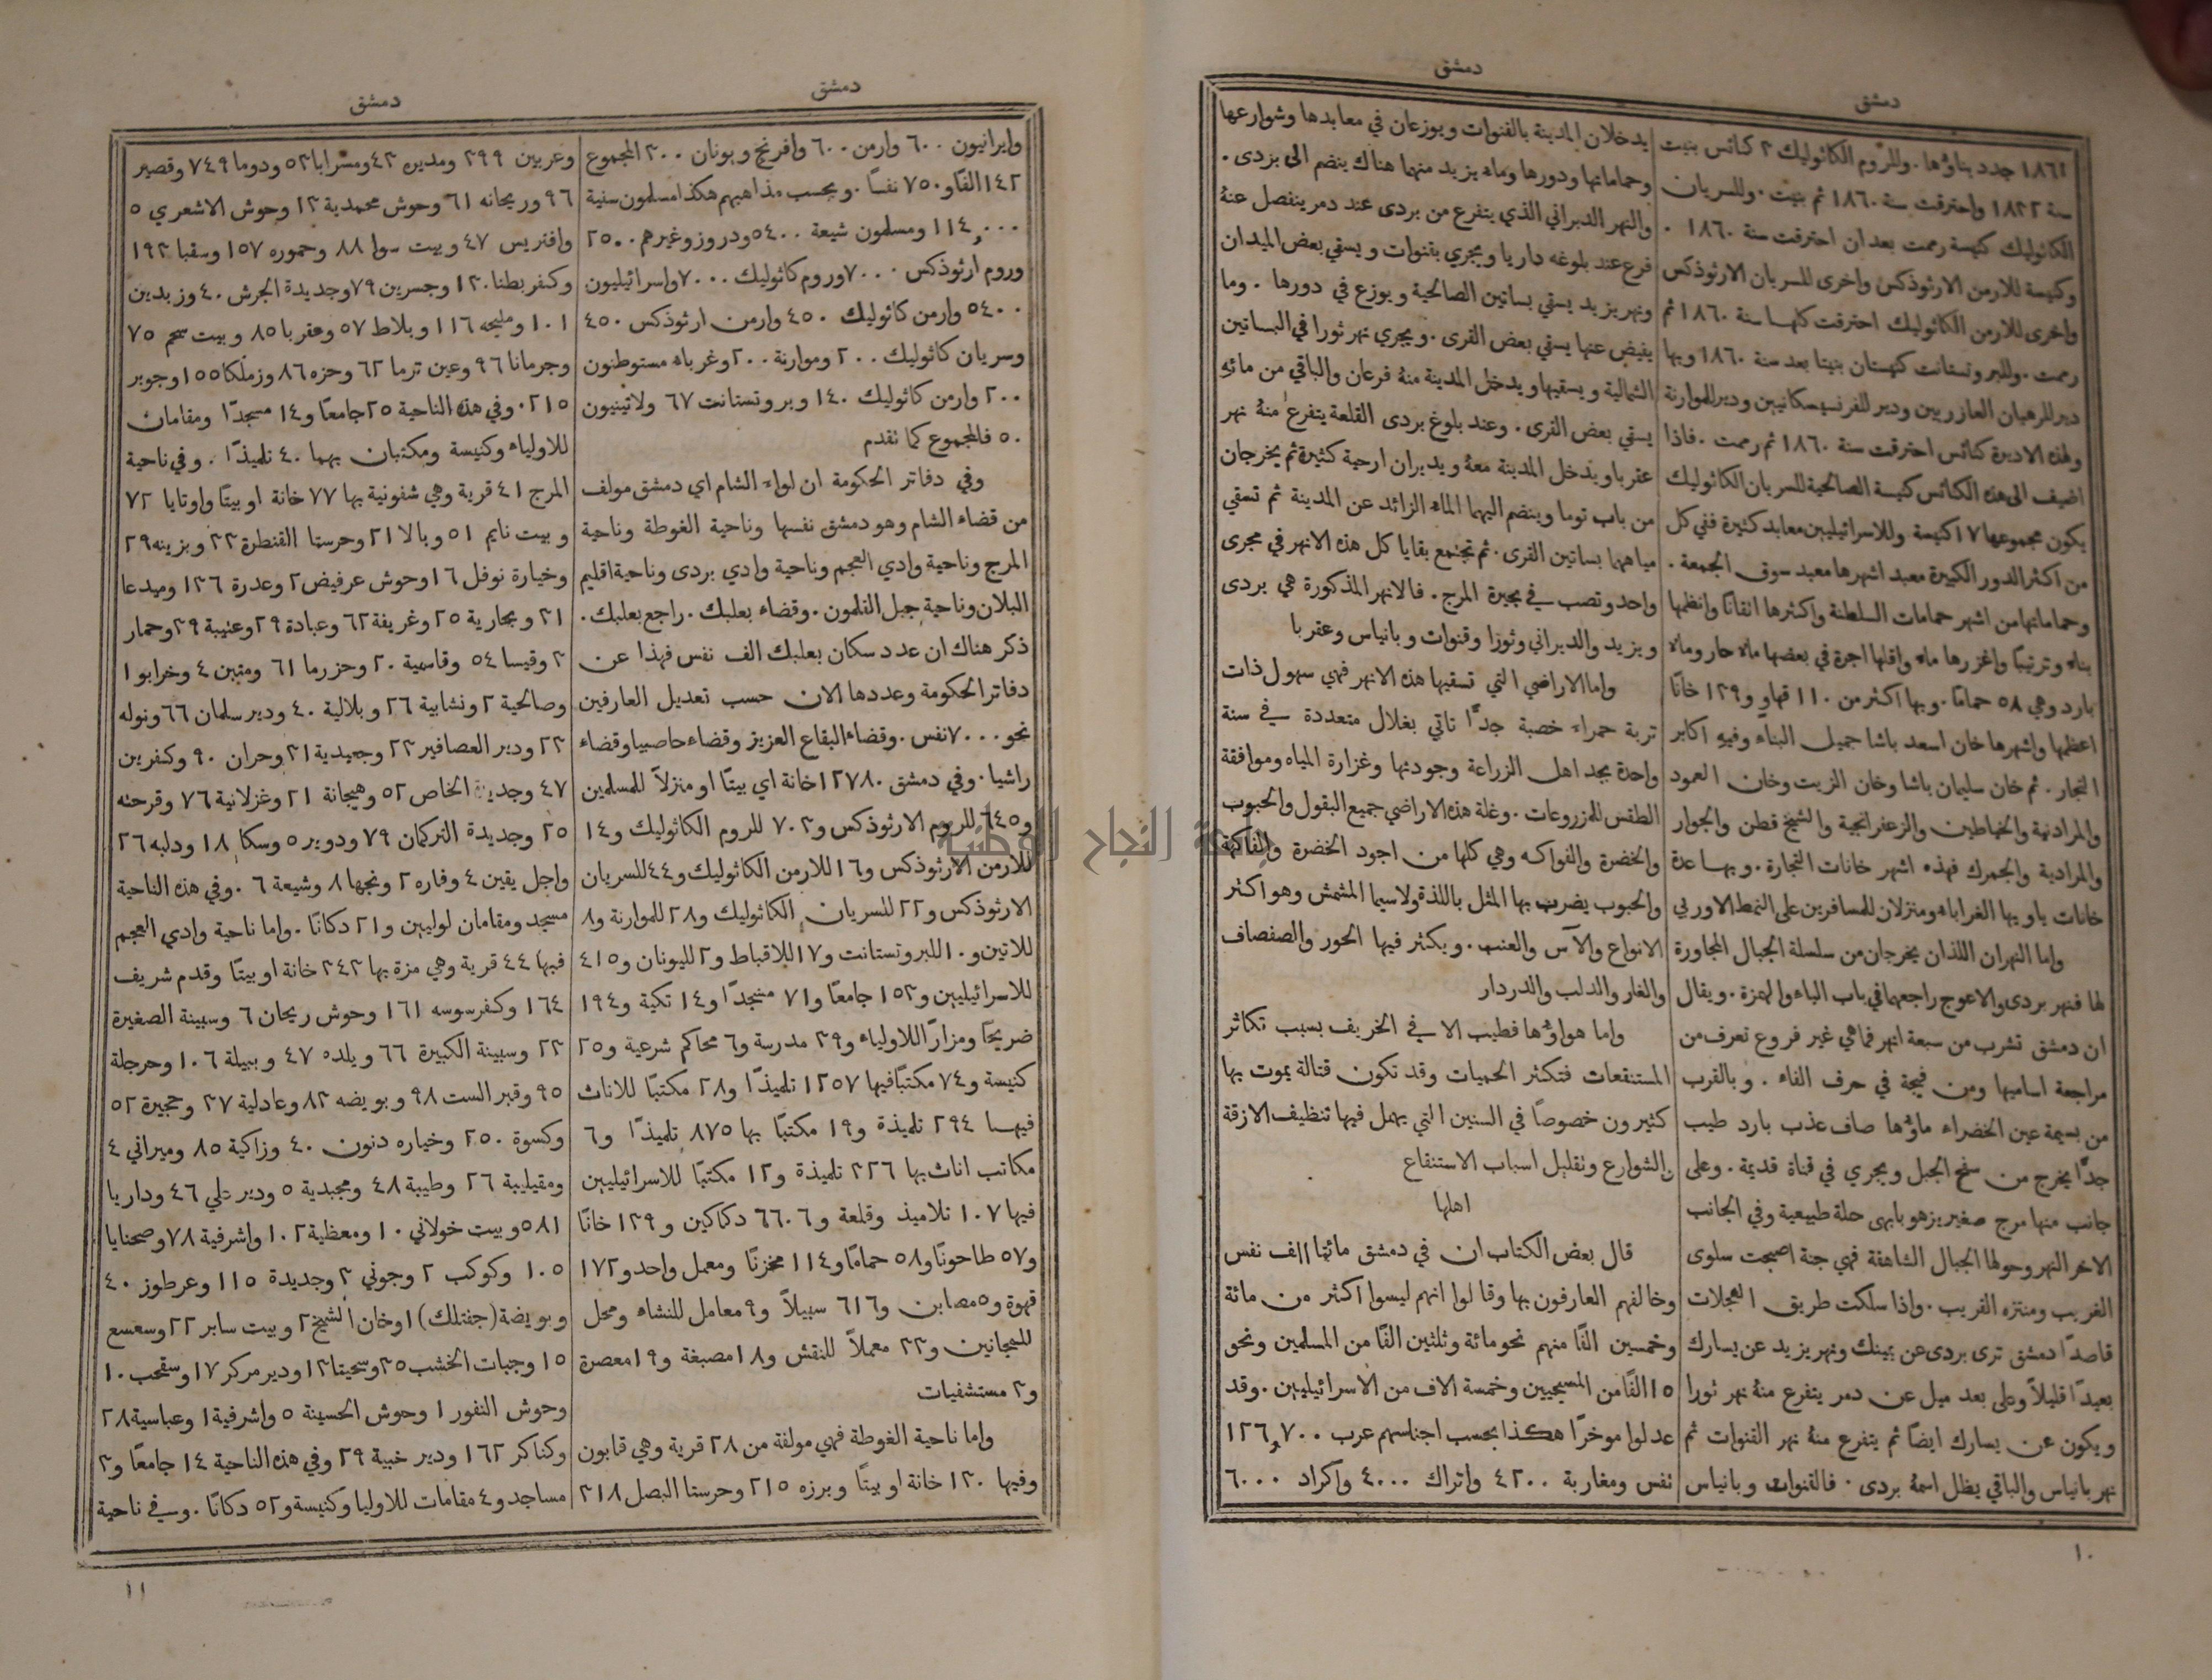 دمشق
دمشق
١٨٦١ جدد بناؤها. وللروم الكاثوليك ٣ كنائس بنيت
سنة ١٨٣٢ واحترقت سنة ١٨٦٠ ثم بنيت. وللسريان
الكاثوليك كنيسة رممت بعد ان احترقت سنة ١٨٦٠.
وكنيسة للارمن الارثوذكس واخرى للسريان الارثوذكس
واخرى للارمن الكاثوليك احترقت كلها سنة ١٨٦٠ ثم
رممت. وللبروتستانت كنيستان بنيتا بعد سنة ١٨٦٠ وبها
دير للرهبان العازريين ودير للفرنسيسكانيين ودير للموارنة
ولهذه الاديرة كنائس احترقت سنة ١٨٦٠ ثم رممت. فاذا
اضيف الى هذه الكنائس كنيسة الصالحية للسريان الكاثوليك
يكون مجموعها ١٧ كنيسة وللاسرائيليين معابد كثيرة ففي كل
من اكثر الدور الكبيرة معبد اشهرها معبد سوق الجمعة.
وحماماتها من اشهر حمامات السلطنة واكثرها اتقانا وانظمها
بناء وترتيبا واغزرها ماء واقلها اجرة في بعضها ماء حار وماء
بارد وهي ٥٨ حماما. وبها اكثر من ١١٠ قهاو و١٣٩ خانا
اعظمها واشهرها خان اسعد باشا جميل البناء وفيه اكابر
التجار. ثم خان سليمان باشا وخان الزيت وخان العمود
والمرادنية والخياطين والزعفرانجية والشيخ قطن والجوار
والمرادية والجمرك فهذه اشهر خانات التجارة. وبها عدة
خانات ياوي بها الغرباء ومنزلان للمسافرين على النمط الاوربي
واما النهران اللذان يخرجان من سلسلة الجبال المجاورة
لها فنهر بردى والاعوج راجعهما في باب الباء والهمزة. ويقال
ان دمشق تشرب من سبعة انهر فما هي غير فروع تعرف من
مراجعة اساميها ومن فيجة في حرف الفاء. وبالقرب
من بسيمة عين الخضراء ماؤها صاف عذب بارد طيب
جدا يخرج من سفح الجبل ويجري في قناة قديمة. وعلى
جانب منها مرج صغير يزهو بابهى حلة طبيعية وفي الجانب
الاخر النهر وحولها الجبال الشاهقة فهي جنة اصبحت سلوى
الغريب ومنتزه القريب. واذا سلكت طريق العجلات
قاصدا دمشق ترى بردى عن يمينك ونهر يزيد عن يسارك
بعيدا قليلا وعلى بعد ميل عن دمر يتفرع منه نهر ثورا
ويكون عن يسارك ايضا ثم يتفرع منه نهر القنوات ثم
نهر بانياس والباقي يظل اسمه بردى. فالقنوات وبانياس
يدخلان المدينة بالقنوات ويوزعان في معابدها وشوارعها
وحماماتها ودورها وماء يزيد منهما هناك ينضم الى بردى.
والنهر الديراني الذي يتفرع من بردى عند دمر ينفصل عنه
فرع عند بلوغه داريا ويجري بقنوات ويسقي بعض الميدان
ونهر يزيد يسقي بساتين الصالحية ويوزع في دورها. وما
يفيض عنها يسقي بعض القرى. ويجري نهر ثورا في البساتين
الشمالية ويسقيها ويدخل المدينة منه فرعان والباقي من مائه
يسقي بعض القرى. وعند بلوغ بردى القلعة يتفرع منه نهر
عقربا ويدخل المدينة معه ويديران ارحية كثيرة ثم يخرجان
من باب توما وينضم اليهما الماء الزائد عن المدينة ثم تسقي
مياههما بساتين القرى. ثم تجتمع بقايا كل هذه الانهر في مجرى
واحد وتصب في بحيرة المرج. فالانهر المذكورة هي بردى
ويزيد والديراني وثورا وقنوات وبانياس وعقربا
واما الاراضي التي تسقيها هذه الانهر فهي سهول ذات
تربة حمراء خصبة جدًا تاتي بغلال متعددة في سنة
واحدة بجد اهل الزراعة وجودتها وغزارة المياه وموافقة
الطقس للمزروعات. وغلة هذه الاراضي جميع البقول والحبوب
والخضرة والفواكه وهي كلها من اجود الخضرة والفاكهة
والحبوب يضرب بها المثل باللذة ولاسيما المشمش وهو اكثر
الانواع والآس والعنب. ويكثر فيها الحور والصفصاف
والغار والدلب والدردار
واما هواؤها فطيب الا في الخريف بسبب تكاثر
المستنقعات فتكثر الحميات وقد تكون قتالة يموت بها
كثيرون خصوصًا في السنين التي يهمل فيها تنظيف الازقة
والشوارع وتقليل اسباب الاستنقاع
اهلها
قال بعض الكتاب ان في دمشق مائتا الف نفس
وخالفهم العارفون بها وقالوا انهم ليسوا اكثر من مائة
وخمسين الفًا منهم نحو مائة وثلثين الفًا من المسلمين ونحو
١٥ الفًا من المسيحيين وخمسة الاف من الاسرائيليين. وقد
عدلوا موخرًا هكذا بحسب اجناسهم عرب ١٢٦,٧٠٠
نفس ومغاربة ٤٢٠٠ واتراك ٤٠٠٠ واكراد ٦٠٠٠
١٠
دمشق
دمشق
وايرانيون ٦٠٠ وارمن ٦٠٠ وافرنج ويونان ٣٠٠ المجموع
١٤٢ الفًا و٧٥٠ نفسًا. وبحسب مذاهبهم هكذا مسلمون سنية
١١٤,٠٠٠ ومسلمون شيعة ٥٤٠٠ ودروز وغيرهم ٢٥٠٠
وروم ارثوذكس ٧٠٠٠ وروم كاثوليك ٧٠٠٠ واسرائيليون
٥٤٠٠ وارمن كاثوليك ٤٥٠ وارمن ارثوذكس ٤٥٠
وسريان كاثوليك ٢٠٠ وموارنة ٢٠٠ وغرباء مستوطنون
٢٠٠ وارمن كاثوليك ١٤٠ وبروتستانت ٦٧ ولاتينيون
٥٠ فالمجموع كما تقدم
وفي دفاتر الحكومة ان لواء الشام اي دمشق مولف
من قضاء الشام وهو دمشق نفسها وناحية الغوطة وناحية
المرج وناحية وادي العجم وناحية وادي بردى وناحية اقليم
البلان وناحية جبل القلمون. وقضاء بعلبك. راجع بعلبك.
ذكر هناك ان عدد سكان بعلبك الف نفس فهذا عن
دفاتر الحكومة وعددها الان حسب تعديل العارفين
نحو ٧٠٠٠ نفس. وقضاء البقاع العزيز وقضاء حاصبيا وقضاء
راشيا. وفي دمشق ١٢٧٨٠ خانة اي بيتًا او منزلاً للمسلمين
و٦٤٥ للروم الارثوذكس و٧٠٣ للروم الكاثوليك و١٤
للارمن الارثوذكس و١٦ للارمن الكاثوليك و٤٤ للسريان
الارثوذكس و٢٢ للسريان الكاثوليك و٢٨ للموارنة و٨
للاتين و١٠ للبروتستانت و١٧ للاقباط و٢ لليونان و٤١٥
للاسرائيليين و١٥٣ جامعًا و٧١ مسجدًا و١٤ تكية و١٩٤
ضريحًا ومزارًا للاولياء و٣٩ مدرسة و٦ محاكم شرعية و٢٥
كنيسة و٧٤ مكتبًا فيها ١٢٥٧ تلميذًا و٢٨ مكتبًا للاناث
فيها ٢٩٤ تلميذة و١٩ مكتبًا بها ٨٧٥ تلميذًا و٦
مكاتب اناث بها ٢٢٦ تلميذة و١٢ مكتبًا للاسرائيليين
فيها ١٠٧ تلاميذ وقلعة و٦٦٠٦ دكاكين و١٣٩ خانًا
و٥٧ طاحونًا و٥٨ حمامًا و١١٤ مخزنًا ومعمل واحد و١٧٢
قهوة و٥ مصابن و٦١٦ سبيلاً و٩ معامل للنشاء ومحل
للمجانين و٢٢ معملاً للنقش و١٨ مصبغة و١٩ معصرة
و٣ مستشفيات
واما ناحية الغوطة فهي مولفة من ٢٨ قرية وهي قابون
وفيها ١٣٠ خانة او بيتًا وبرزه ٢١٥ وحرستا البصل ٣١٨
وعربين ٣٩٩ ومديره ٤٣ ومسرابا ٥٣ ودوما ٧٤٩ وقصير
٩٦ وريحانه ٦١ وحوش محمدية ١٣ وحوش الاشعري ٥
وافتريس ٤٧ وبيت سوا ٨٨ وحموره ١٥٧ وسقبا ١٩٣
وكفربطنا ١٣٠ وجسرين ٧٩ وجديدة الجرش ٤٠ وزبدين
١٠١ ومليحه ١١٦ وبلاط ٥٧ وعقربا ٨٥ وبيت سحم ٧٥
وجرمانا ٩٦ وعين ترما ٦٢ وحزه ٨٦ وزملكا ١٥٥ وجوبر
٢١٥. وفي هذه الناحية ٢٥ جامعًا و١٤ مسجدًا ومقامان
للاولياء وكنيسة ومكتبان بهما ٤٠ تلميذًا. وفي ناحية
المرج ٤١ قرية وهي شفونية بها ٧٧ خانة او بيتًا واوتايا ٧٢
وبيت نايم ٥١ وبالا ٢١ وحرستا القنطرة ٢٣ وبزينه ٢٩
وخيارة نوفل ١٦ وحوش عرفيض ٢ وعدرة ١٣٦ وميدعا
٣١ وبحارية ٢٥ وغريفة ٦٢ وعبادة ٣٩ وعتيبة ٣٩ وحمار
٣ وقيسا ٥٤ وقاسمية ٢٠ وحزرما ٦١ ومتبن ٤ وخرابو ١
وصالحية ٢ ونشابية ٢٦ وبلالية ٤٠ ودير سلمان ٦٦ ونوله
٢٣ ودير العصافير ٢٣ وجعيدية ٣١ وحران ٩٠ وكفرين
٤٧ وجديدة الخاص ٥٢ وهيجانة ٢١ وغزلانية ٧٦ وقرحته
٢٥ وجديدة التركمان ٧٩ ودوير ٥ وسكا ١٨ ودلبه ٢٦
واجل يقين ٤ وفاره ٢ ونجها ٨ وشيعة ٦. وفي هذه الناحية
مسجد ومقامان لوليين و٢١ دكانًا. واما ناحية وادي العجم
فيها ٤٤ قرية وهي مزة بها ٢٤٣ خانة او بيتًا وقدم شريف
١٦٤ وكفرسوسه ١٦١ وحوش ريحان ٦ وسبينة الصغيرة
٢٣ وسبينة الكبيرة ٦٦ ويلده ٤٧ وببيلة ١٠٦ وحرجلة
٩٥ وقبر الست ٩٨ وبويضه ٨٣ وعادلية ٣٧ وحجيرة ٥٢
وكسوة ٢٥٠ وخياره دنون ٤٠ وزاكية ٨٥ وميراني ٤
ومقيليبة ٢٦ وطيبة ٤٨ ومجيدية ٥ ودير علي ٤٦ وداريا
٥٨١ وبيت خولاني ١٠ ومعظية ١٠٢ واشرفية ٧٨ وصحنايا
١٠٥ وكوكب ٢ وجوني ٣ وجديدة ١١٥ وعرطوز ٤٠
وبويضة (جفتلك) ١ وخان الشيخ ٢ وبيت سابر ٢٢ وسعسع
١٥ وجبات الخشب ٢٥ وسحيتا ١٢ ودير مركر ١٧ وسقحب ١٠
وحوش النفور ١ وحوش الحسينة ٥ واشرفية ١ وعباسية ٢٨
وكناكر ١٦٢ ودير خبية ٢٩ وفي هذه الناحية ١٤ جامعًا و٣
مساجد و٤ مقامات للاوليا وكنيسة و٥٢ دكانًا. وفي ناحية
١١
جامعة النجاح الوطنية